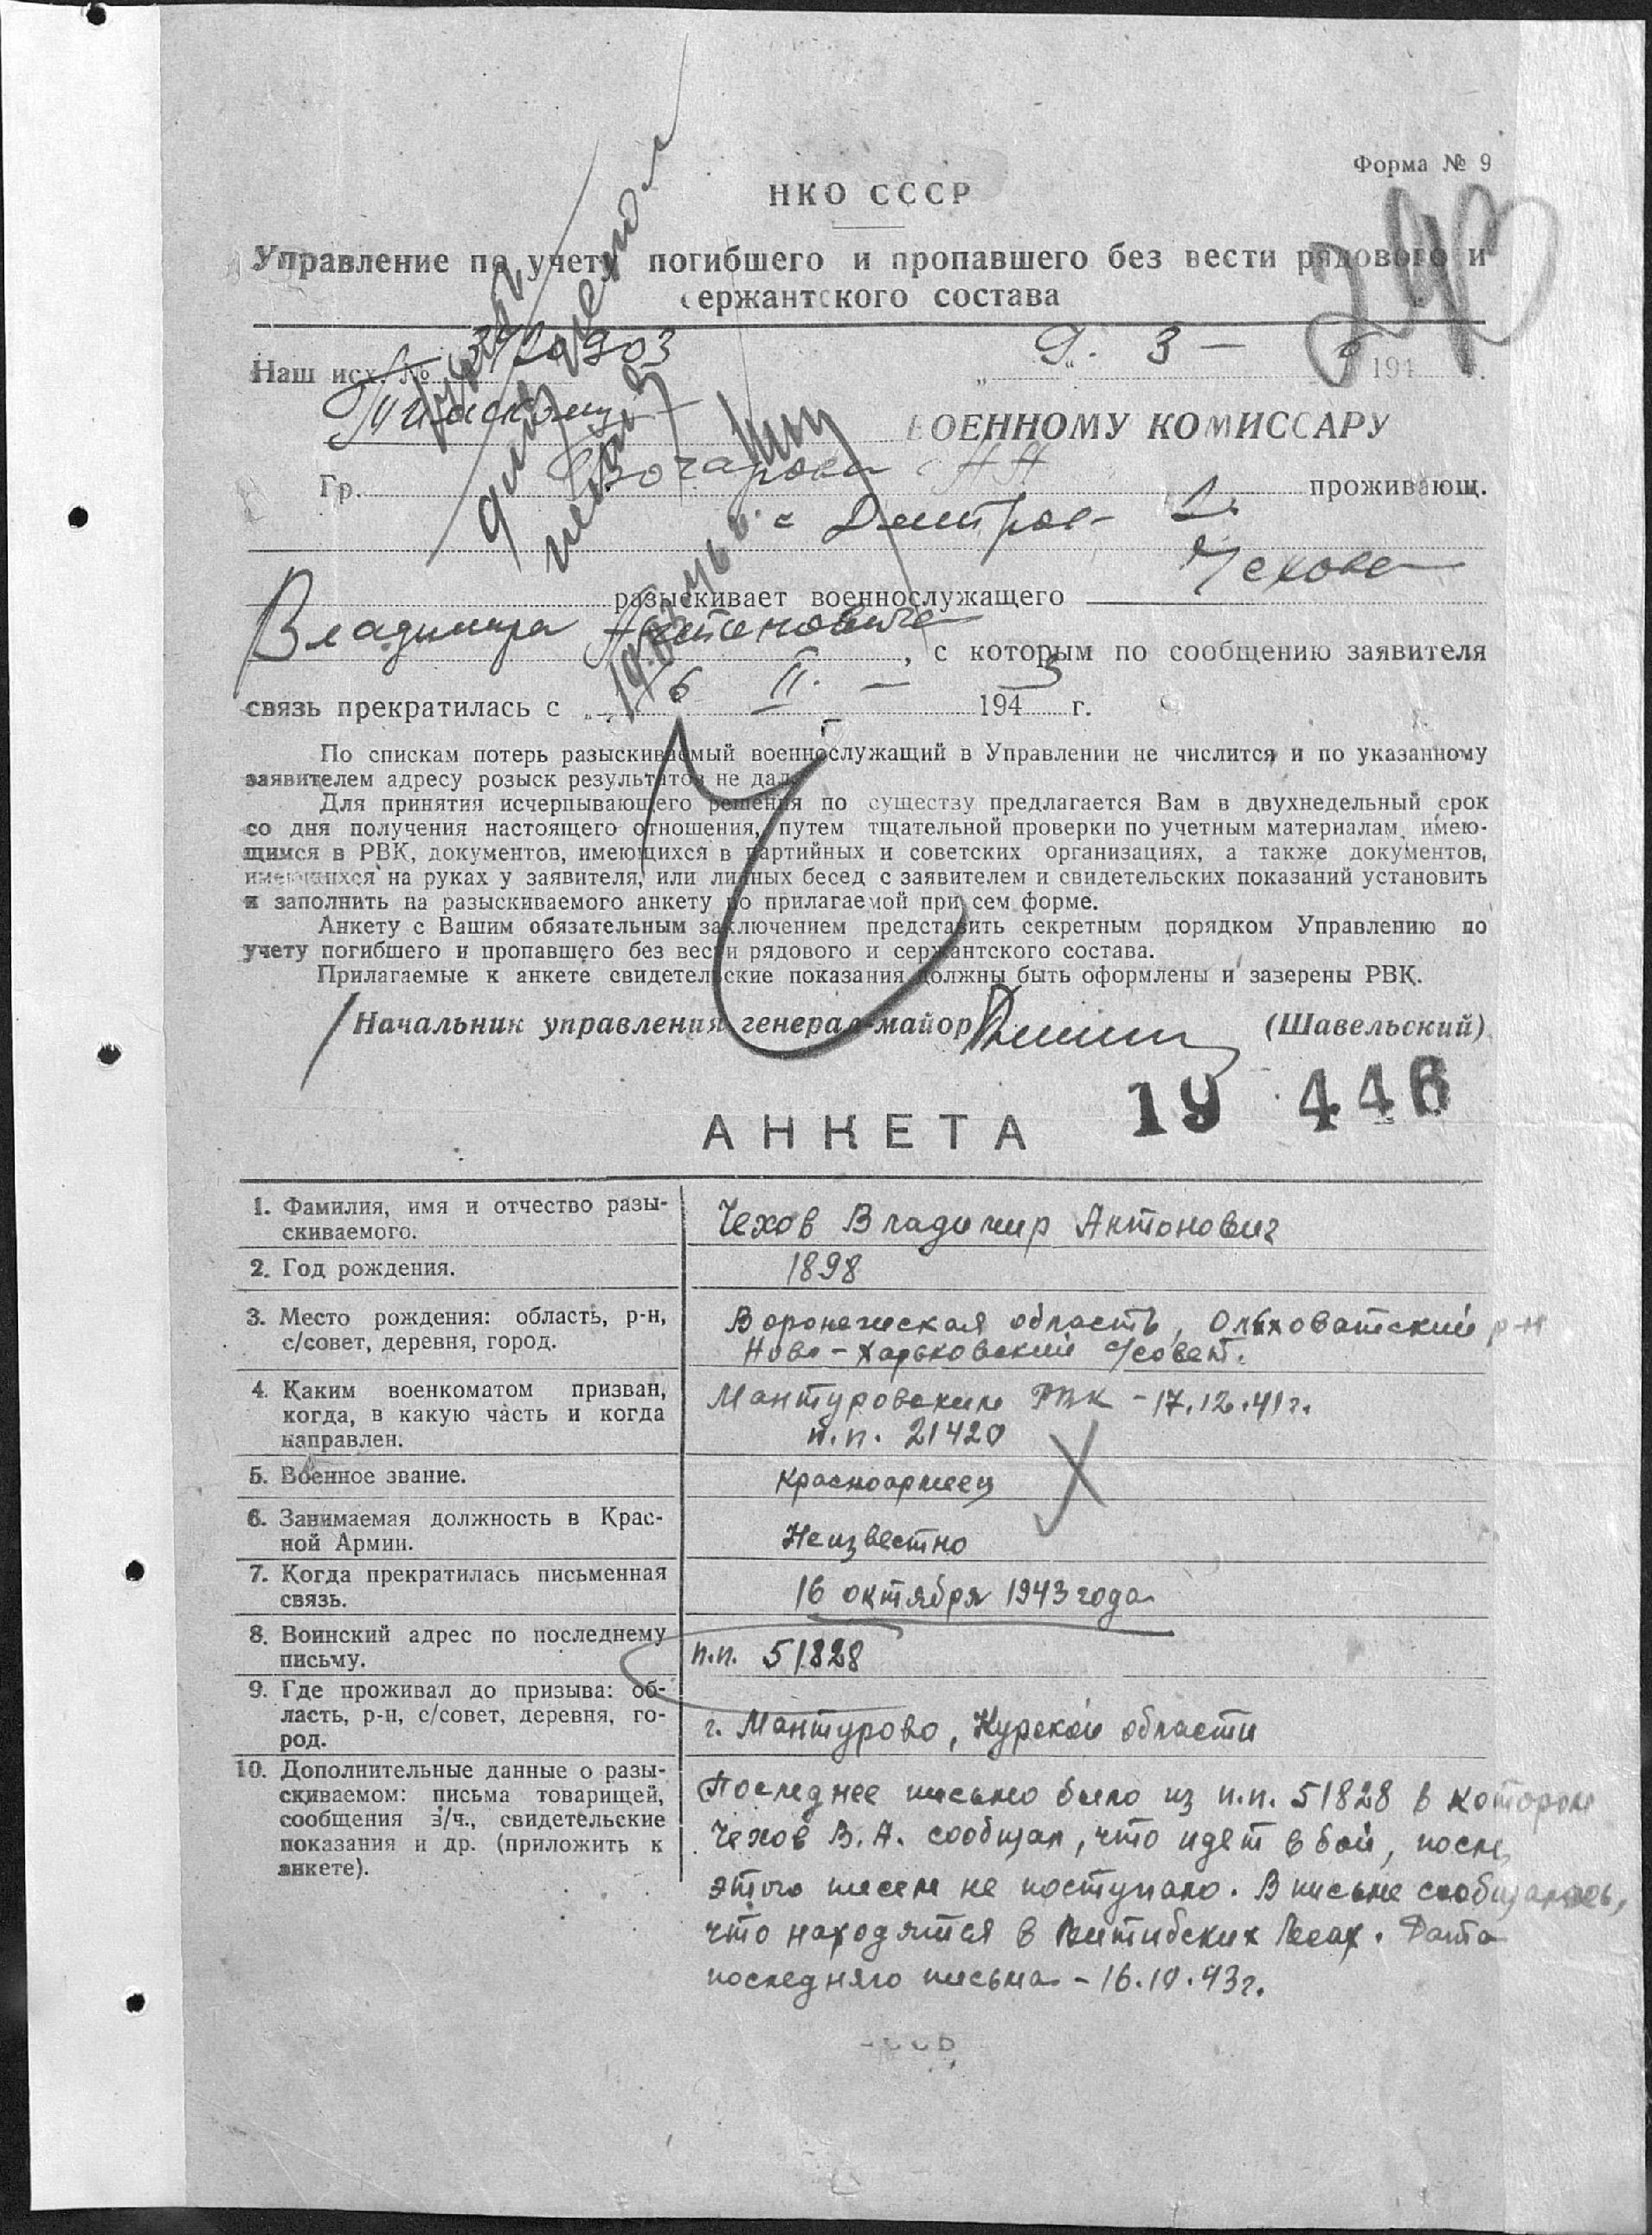 Форма № 9
НКО СССР
Управление по учету погибшего и пропавшего без вести рядового и
сержантского состава
Наш исх. № 9. 3 — 194 г.
ВОЕННОМУ КОМИССАРУ
Гр. Бочарова А Н проживающ.
с Дмитров-
Чехова
разыскивает военнослужащего
Владимира Антоновича
, с которым по сообщению заявителя
связь прекратилась с „ 16 II. — 1943 г.
По спискам потерь разыскиваемый военнослужащий в Управлении не числится и по указанному
заявителем адресу розыск результатов не дал.
Для принятия исчерпывающего решения по существу предлагается Вам в двухнедельный срок
со дня получения настоящего отношения, путем тщательной проверки по учетным материалам, имею-
щимся в РВК, документов, имеющихся в партийных и советских организациях, а также документов,
имеющихся на руках у заявителя, или личных бесед с заявителем и свидетельских показаний установить
и заполнить на разыскиваемого анкету по прилагаемой при сем форме.
Анкету с Вашим обязательным заключением представить секретным порядком Управлению по
учету погибшего и пропавшего без вести рядового и сержантского состава.
Прилагаемые к анкете свидетельские показания должны быть оформлены и заверены РВК.
Начальник управления генерал-майор (Шавельский)
19 446
АНКЕТА
1. Фамилия, имя и отчество разы-
скиваемого.
Чехов Владимир Антонович
2. Год рождения.
1898
3. Место рождения: область, р-н,
с/совет, деревня, город.
Воронежская область, Ольховатский р-н
Ново-Харьковский с/совет.
4. Каким военкоматом призван,
когда, в какую часть и когда
направлен.
Мантуровским РВК - 17.12.41г.
п.п. 21420
5. Военное звание.
Красноармеец
6. Занимаемая должность в Крас-
ной Армии.
Неизвестно
7. Когда прекратилась письменная
связь.
16 октября 1943 года
8. Воинский адрес по последнему
письму.
п.п. 51828
9. Где проживал до призыва: об-
ласть, р-н, с/совет, деревня, го-
род.
г. Мантурово, Курской области
10. Дополнительные данные о разы-
скиваемом: письма товарищей,
сообщения в/ч., свидетельские
показания и др. (приложить к
анкете).
Последнее письмо было из п.п. 51828 в котором
Чехов В.А. сообщал, что идет в бой, после
этого писем не поступало. В письме сообщалось,
что находятся в Витибских лесах. Дата
последняго письма - 16.10.43г.